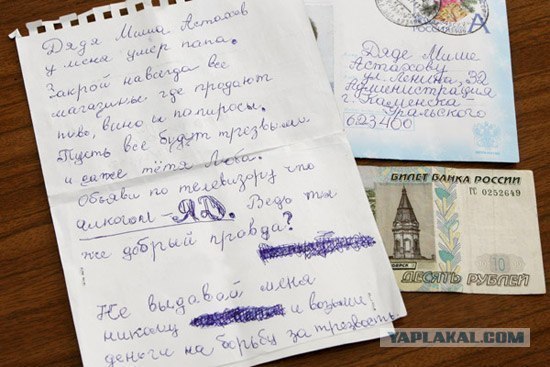 Дядя Миша Астахов
у меня умер папа.
Закрой навсегда все
магазины где продают
пиво, вино и попиросы.
Пусть все будут трезвыми
и даже тётя Люба.
Объяви по телевизору что
алкоголь – ЯД. Ведь ты
же добрый правда?
Не выдавай меня
никому и возьми
деньги на борьбу за трезвость
Дяде Мише
Астахову
ул. Ленина, 32
Администрация
г. Каменска
Уральского
623400
А
БИЛЕТ БАНКА РОССИИ
ГС 0252649
10
ДЕСЯТЬ РУБЛЕЙ
YAPLAKAL.COM